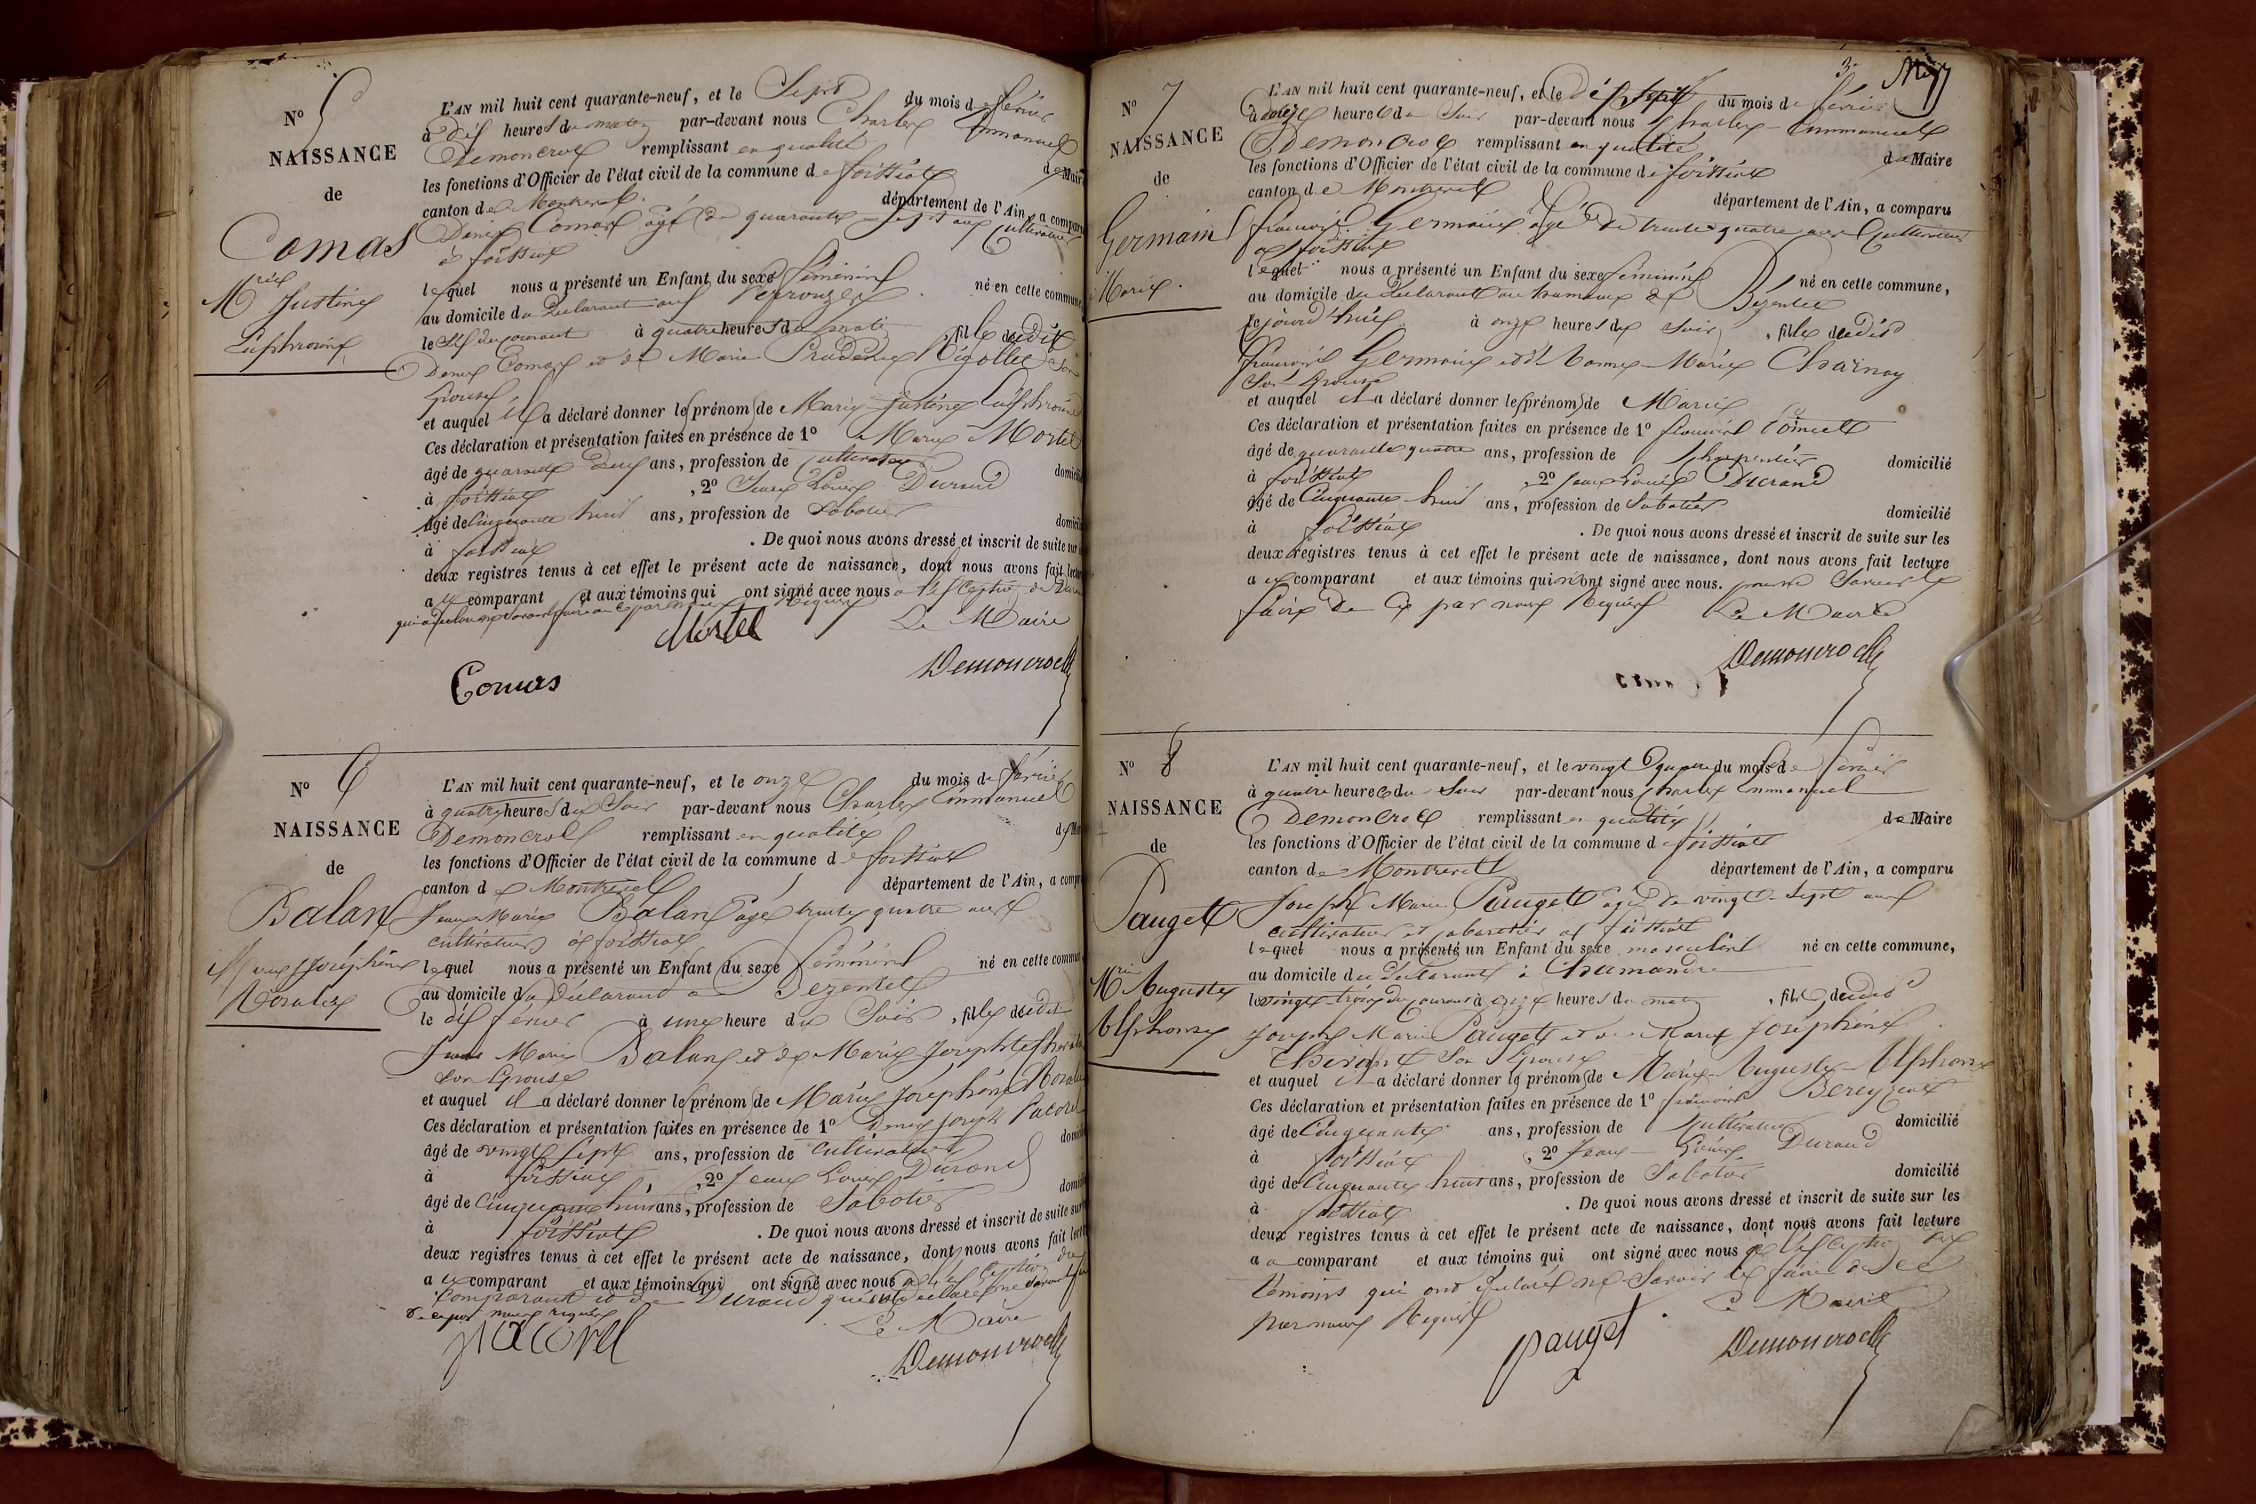 N° 5
NAISSANCE
de
Comas
Mrie Justine
Euphrosine
L'AN mil huit cent quarante-neuf, et le Sept du mois de février
à dix heures du matin par-devant nous Charles Emmanuel
Demoncroc remplissant en qualité de Maire
les fonctions d'Officier de l'état civil de la commune de foissiat
canton de Montrevel département de l'Ain, a comparu
Denis Comas agé de quarante-sept ans Cultivateur
à foissiat
lequel nous a présenté un Enfant du sexe féminin né en cette commune
au domicile du Déclarant
le Six du courant à quatre heures du matin, fille dudit
Denis Comas et de Marie
Epouse
et auquel il a déclaré donner le (prénom) de Marie Justine Euphrosine
Ces déclaration et présentation faites en présence de 1° Marie Mortel
âgé de quarante deux ans, profession de cultivateur domicilié
à foissiat, 2° Jean Louis Durand
âgé de Cinquante huit ans, profession de Sabotier domicilié
à foissiat. De quoi nous avons dressé et inscrit de suite sur
deux registres tenus à cet effet le présent acte de naissance, dont nous avons fait lecture
au comparant et aux témoins qui ont signé avec nous a l'exception de Durand
Requis
Mortel Le Maire
Comas Demoncroc
N° 6
NAISSANCE
de
Balan
Marie Joséphine
L'AN mil huit cent quarante-neuf, et le onze du mois de février
à quatre heures du Soir par-devant nous Charles Emmanuel
Demoncroc remplissant en qualité de Maire
les fonctions d'Officier de l'état civil de la commune de foissiat
canton de Montrevel département de l'Ain, a comparu
Jean Marie Balan agé trente quatre ans
cultivateur à foissiat
lequel nous a présenté un Enfant du sexe féminin né en cette commune
au domicile du Déclarant a Bezentel
le dix février à une heure du Soir, fille dudit
Jean Marie Balan et de Marie Josephte
son Epouse
et auquel il a déclaré donner le (prénom) de Marie Joséphine
Ces déclaration et présentation faites en présence de 1° Denis Joseph Pacorel
âgé de vingt Sept ans, profession de cultivateur domicilié
à foissiat, 2° Jean Louis Durand
âgé de Cinquante huit ans, profession de Sabotier domicilié
à foissiat. De quoi nous avons dressé et inscrit de suite sur
deux registres tenus à cet effet le présent acte de naissance, dont nous avons fait lecture
au comparant et aux témoins qui ont signé avec nous a l'exception du
Comparant et de Durand qui ont déclaré ne savoir
de ce par nous requis
Le Maire
Pacorel Demoncroc
N° 7
NAISSANCE
de
Germain
Marie
3
L'AN mil huit cent quarante-neuf, et le dix Sept du mois de février
à onze heures du Soir par-devant nous Charles-Emmanuel
Demoncroc remplissant en qualité de Maire
les fonctions d'Officier de l'état civil de la commune de foissiat
canton de Montrevel département de l'Ain, a comparu
françois Germain agé de trente quatre ans Cultivateur
a foissiat
lequel nous a présenté un Enfant du sexe féminin né en cette commune,
au domicile du Déclarant au hameau de Bezentel
lejourd'hui à onze heures du Soir, fille dudit
françois Germain et de Marie Charnay
Son Epouse
et auquel il a déclaré donner le (prénom) de Marie
Ces déclaration et présentation faites en présence de 1° françois
âgé de quarante quatre ans, profession de Charpentier domicilié
à foissiat, 2° Jean Louis Durand
âgé de Cinquante-huit ans, profession de Sabotier domicilié
à foissiat. De quoi nous avons dressé et inscrit de suite sur les
deux registres tenus à cet effet le présent acte de naissance, dont nous avons fait lecture
au comparant et aux témoins qui n'ont signé avec nous. pour ne Savoir le
faire de ce par nous Requis Le Maire
Demoncroc
N° 8
NAISSANCE
de
Pauget
Mrie Auguste
Alphonse
L'AN mil huit cent quarante-neuf, et le vingt quatre du mois de février
à quatre heures du Soir par-devant nous Charles Emmanuel
Demoncroc remplissant en qualité de Maire
les fonctions d'Officier de l'état civil de la commune de foissiat
canton de Montrevel département de l'Ain, a comparu
Joseph Marie Pauget agé de vingt-Sept ans
cultivateur et cabaretier a foissiat
lequel nous a présenté un Enfant du sexe masculin né en cette commune,
au domicile du déclarant à Chamandre
le vingt-trois du courant à onze heures du matin, fils dudit
Joseph Marie Pauget et de Marie Joséphine
Son Epouse
et auquel il a déclaré donner le prénom de Marie-Auguste-Alphonse
Ces déclaration et présentation faites en présence de 1° françois Bereyziat
âgé de Cinquante ans, profession de Cultivateur domicilié
à foissiat, 2° Jean-Louis Durand
âgé de Cinquante huit ans, profession de Sabotier domicilié
à foissiat. De quoi nous avons dressé et inscrit de suite sur les
deux registres tenus à cet effet le présent acte de naissance, dont nous avons fait lecture
au comparant et aux témoins qui ont signé avec nous a l'exception des
témoins qui ont déclaré ne Savoir le faire de ce
par nous Requis Le Maire
pauget Demoncroc